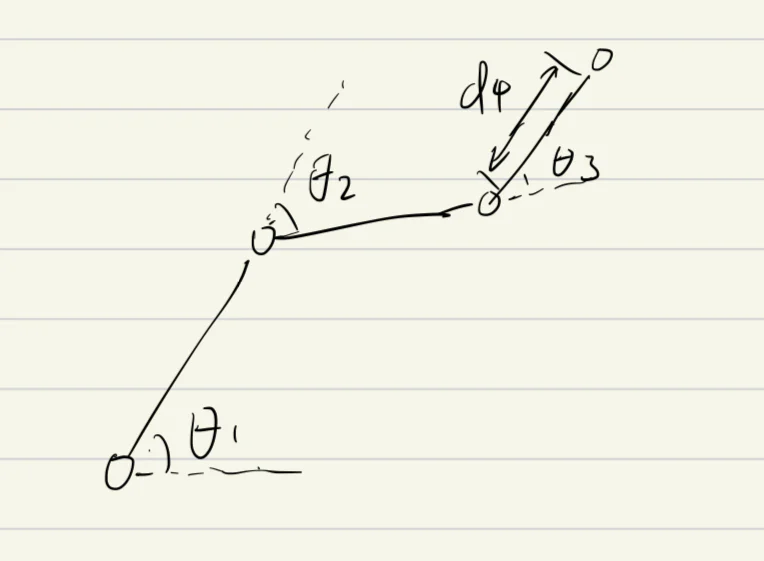 d4
θ3
θ2
θ1